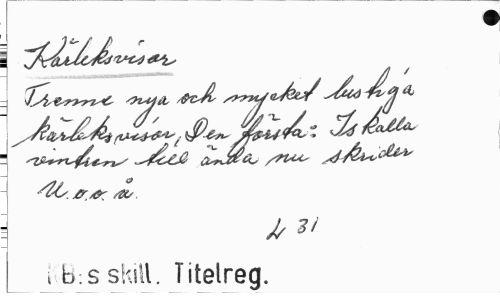 Kärleksvisor
Trenne nya och mycket lustiga
kärleksvisor, Den första: Iskalla
vintren till ända nu skrider
U.o.o. å.
L 31
KB:s skill. Titelreg.